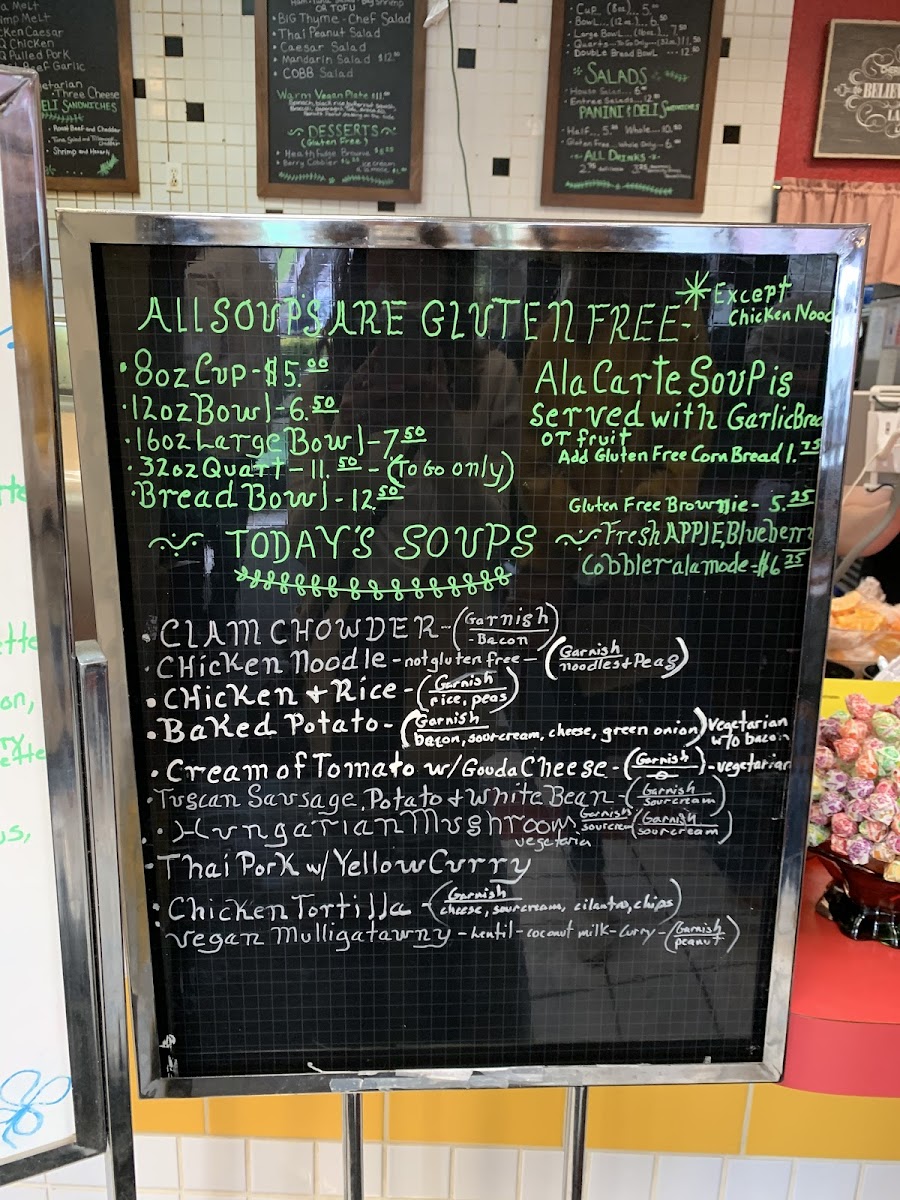 a Melt
mp Melt
ken Caesar
Q Chicken
Q Pulled Pork
Beef Garlic
etarian
Three Cheese
ELI SANDWICHES
Roast Beef and Cheddar
Shrimp and Havarti
OR TOFU
• BIG Thyme - Chef Salad
• Thai Peanut Salad
• Caesar Salad
• Mandarin Salad $12.50
• COBB Salad
Warm Vegan Plate
DESSERTS
(Gluten Free)
Cup (8oz)... 5.00
Bowl... (12oz)... 6.50
Large Bowl... (16oz)... 7.50
Double Bread Bowl... 12.50
SALADS
House Salad... 6
Entree Salads... 12.50
PANINI & DELI SANDWICHES
Half... 5. Whole... 10.50
Gluten Free - Whole Only - 6
ALL DRINKS
BELIEV
ALL SOUPS ARE GLUTEN FREE- * Except
Chicken Nood
• 8oz Cup - $5.00
• 12oz Bowl - 6.50
• 16oz Large Bowl - 7.50
• 32oz Quart - 11.50 - (To Go only)
• Bread Bowl - 12.50
Ala Carte Soup is
served with Garlic Brea
or fruit
Add Gluten Free Corn Bread 1.75
Gluten Free Brownie - 5.25
Fresh APPLE, Blueberry
Cobbler alamode - $6.25
TODAY'S SOUPS
• CLAM CHOWDER - (Garnish
- Bacon)
• CHicken Noodle - not gluten free - (Garnish
noodles + Peas)
• CHicken + Rice - (Garnish
rice, peas)
• Baked Potato - (Garnish
bacon, sour cream, cheese, green onion) Vegetarian
w/o bacon
• Cream of Tomato w/ Gouda Cheese - (Garnish
) - vegetarian
• Tuscan Sausage, Potato + White Bean - (Garnish
sour cream)
• Hungarian Mushroom Garnish
sour cream (Garnish
sour cream)
vegetaria
• Thai Pork w/ Yellow Curry
• Chicken Tortilla - (Garnish
cheese, sour cream, cilantro, chips)
• Vegan Mulligatawny - Lentil - coconut milk - curry - (Garnish
peanut)